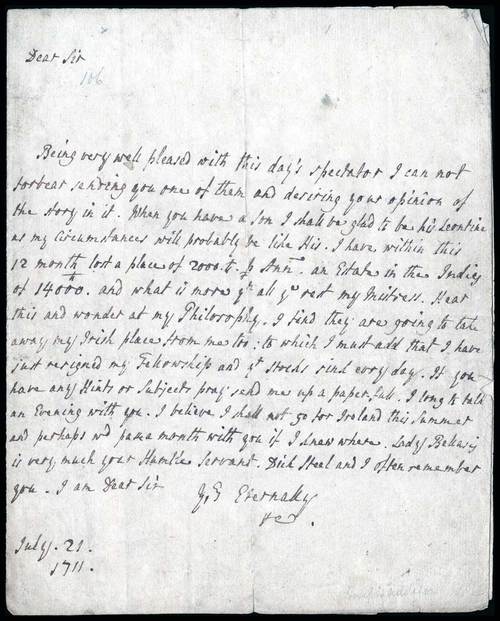 Dear Sir
106
Being very well pleased with this day's spectator I can not
forbear sending you one of them and desiring your opinion of
the story in it. When you have a Son I shall be glad to be his Leontine
as my Circumstances will probably be like His. I have within this
12 month lost a place of 2000 £ p Ann. an Estate in the Indies
of 14000. and what is more yn all ye rest my Mistress. Hear
this and wonder at my Philosophy. I find they are going to take
away my Irish place from me too: to which I must add that I have
just resigned my Fellowship and yt stocks sink every day. If you
have any Hints or Subjects pray send me up a paper full. I long to talk
an Evening with you. I believe I shall not go for Ireland this Summer
and perhaps wd pass a month with you if I knew where. Lady Bellasis
is very much your Humble Servant. Dick Steel and I often remember
you. I am Dear Sir
Eternally
July. 21.
1711.